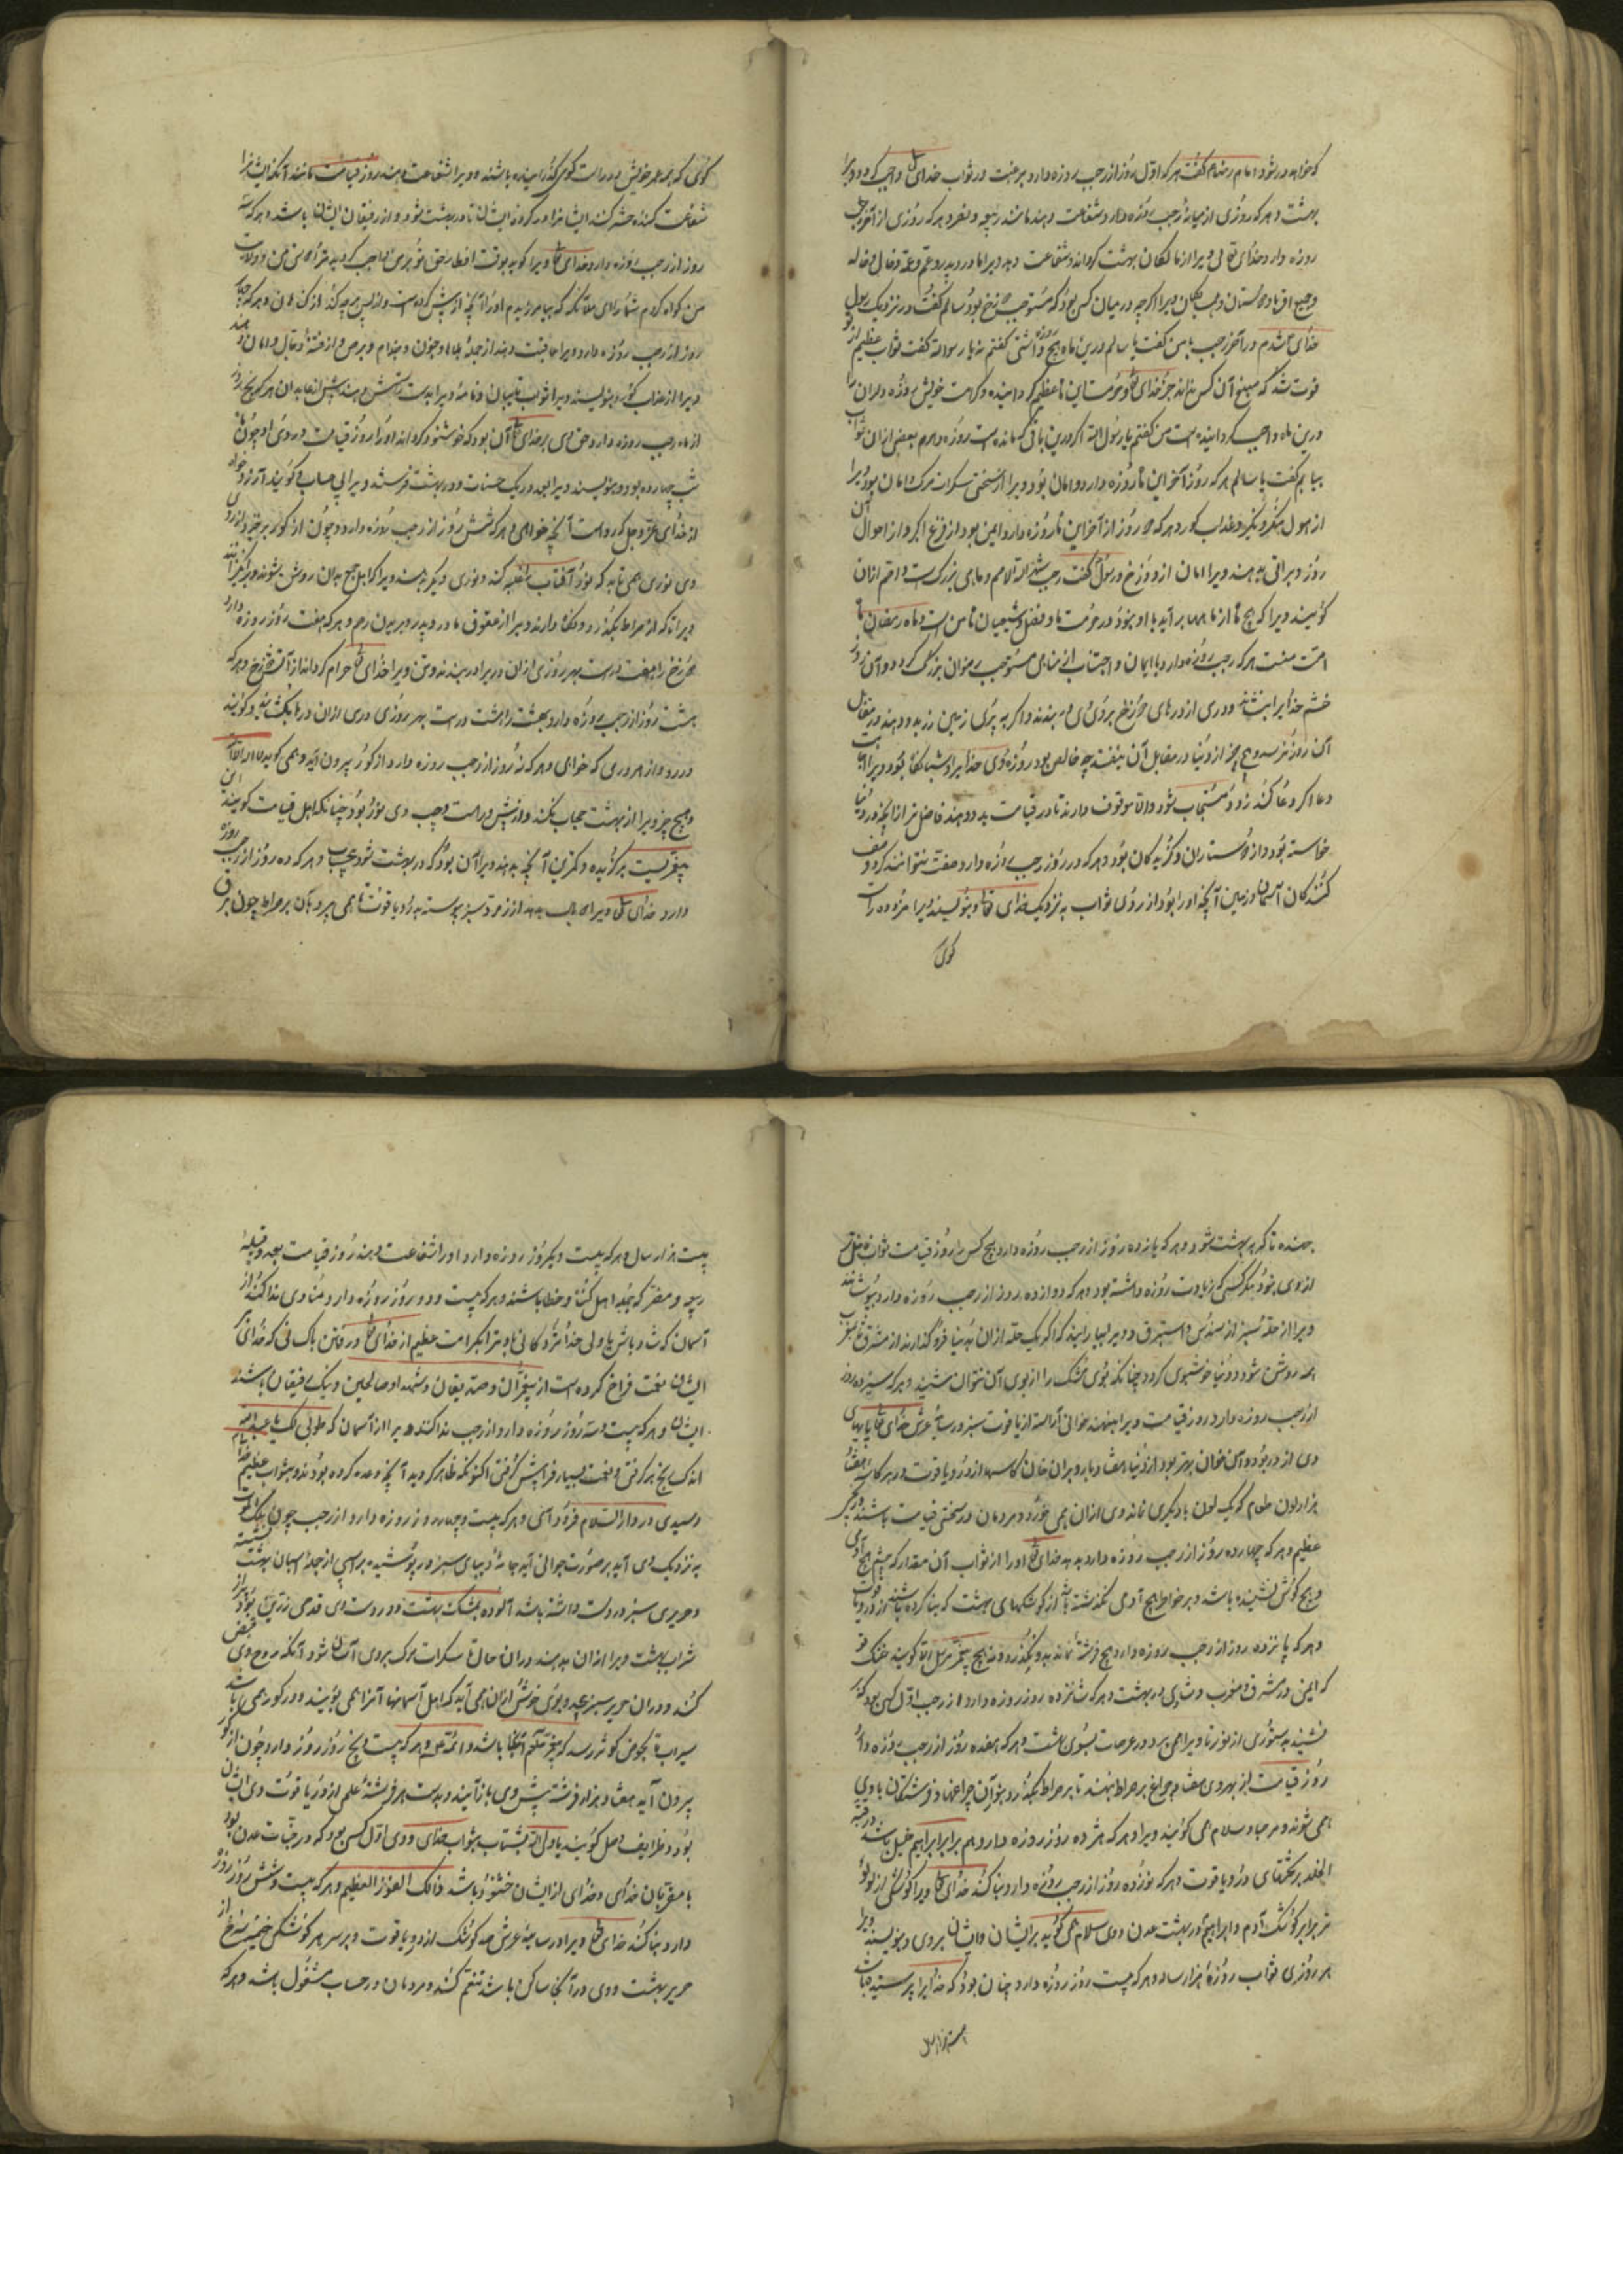 که خواهد در شود امام رضا ع گفت هر که اول روز از رجب روزه دارد برغبت در ثواب خدای تعالی واجب کردد ویرا
بهشت و هر که روزی از میانهٔ رجب روزه دارد شفاعت دهند مانند ربیعه و مضر و هر که روزی از آخر رجب
روزه دارد خدای تعالی ویرا از مالکان بهشت کرداند و شفاعت دهد ویرا در پدر و عم و عمه و خال و خاله
و جمیع اقربا و دوستان و همسایکان ویرا اکرچه در میان کسی بود که مستوجب دوزخ بود سالم کفت در نزدیک رسول
خدای شدم در آخر رجب با من کفت یا سالم درین ماه هیچ روزه داشتی کفتم نه یا رسول الله کفت ثواب عظیم از تو
فوت شد که مبلغ آن کس نداند جز خدای تعالی
درین ماه واجب کردانیده است من کفتم یا رسول الله اکر درین باقی که مانده است روزه دارم بعضی ازان ثواب
بیابم کفت یا سالم هر که روز آخر این ماه روزه دارد امان بود ویرا از سختی سکرات مرک و امان بود ویرا
از هول منکر و نکیر و عذاب کور و هر که دو روز از آخر این ماه روزه دارد ایمن بود از فزع اکبر و از احوال آن
روز و براتی بدهند ویرا امان از دوزخ و رسول کفت رجب شهر الله الاصم و ماهی بزرک است و اصم ازان
کویند ویرا که هیچ ماه از ماهها برابر آید با او نبود در حرمت و فضل و شعبان ماه من است و ماه رمضان ماه
امت منست هر که رجب روزه دارد با ایمان و احتساب از مناهی مستوجب رضوان بزرک کردد و آن روز
خشم خدایرا بنشاند و دری از درهای دوزخ بر روی وی ببندند و اکر به پری زمین زر بدو دهند در مقابل
آن روز نرسد و هیچ چیز از دنیا در مقابل آن نیفتد چه خالص بود روزه وی خدایرا و شبانکاه بود ویرا اجابت
دعا اکر دعا کند زود مستجاب شود والا موقوف دارند تا در قیامت بدو دهند فاضل تر از انچه در دنیا ویرا
خواسته بود از دوستاران و کزیدکان بود و هر که دو روز رجب روزه دارد صفت نتوانند کرد وصف
کنندکان آسمان و زمین آنچه او را بود از روی ثواب به نزدیک خدای تعالی و بنویسند ویرا مزد ده راست
کوی
کوی که همه عمر خویش در راست کوی کذرانیده باشند و ویرا شفاعت دهند روز قیامت مانند آنکه ایشانرا
شفاعت کنند و حشر کنند ایشانرا و در کروه ایشان تا در بهشت شود و از رفیقان ایشان باشد و هر که سه
روز از رجب روزه دارد خدای تعالی ویرا کوید بوقت افطار حق تو بر من واجب کردید ترا محبت من و ولایت
من کواه کردم شما را ای ملائکه که بیامرزیدم او را آنچه از پیش کرده است و از پس هر چه کند از کناهان و هر که چهار
روز از رجب روزه دارد ویرا عافیت دهند از جمله بلاها و جنون و جذام و برص و از فتنهٔ دجال و امان دهند
ویرا از عذاب کور و بنویسند ویرا ثواب تایبان و نامه ویرا بدست راستش دهند پیش از عابدان هر که پنج روز
از ماه رجب روزه دارد حق وی بر خدای آن بود که خوشنود کرداند او را روز قیامت و روی او چون ماه
شب چهارده بود و بنویسند ویرا بعدد ریک حسنات و در بهشت فرستند ویرا بی حساب و کویند آرزو خواه
از خدای عز و جل که رواست آنچه خواهی و هر که شش روز از رجب روزه دارد و چون از کور برخیزد از روی
وی نوری همی تابد که نور آفتاب را غلبه کند و نوری دیکر بدهند ویرا که اهل جمع بدان روشن شوند و برانکیزانند
ویرا تا که از صراط بکذرد و دور دارند ویرا از عقوق مادر و پدر و بریدن رحم و هر که هفت روز روزه دارد
دوزخ را هفت درست بهر روزی ازان در برو در بندند و تن ویرا خدای تعالی حرام کرداند از آتش دوزخ و هر که
هشت روز از رجب روزه دارد بهشت را هشت درست بهر روزی دری ازان درها بکشایند و کویند
در رو از هر دری که خواهی و هر که نه روز از رجب روزه دارد از کور بیرون آید و همی کوید لا اله الا الله
و هیچ چیز ویرا از بهشت حجاب نکند و از پیش و راست و چپ وی نور بود چنانکه اهل قیامت کویند این
پیغمبریست برکزیده و کمترین آنچه بدهند ویرا آن بود که در بهشت شود بی حساب و هر که ده روز از رجب روزه
دارد خدای تعالی ویرا دو بال بدهد از زمرد سبز پیوسته به در و یاقوت تا همی پرد بآن بر صراط چون برق
جهنده تا که به بهشت شود و هر که یازده روز از رجب روزه دارد هیچ کس را روز قیامت ثواب فاضل تر
از وی نبود مکر کسی که زیادت روزه داشته بود و هر که دوازده روز از رجب روزه دارد بپوشانند
ویرا از حله سبز از سندس و استبرق و ویرا بیارایند که اکر یک حله ازان به دنیا فرو کذارند از مشرق تا مغرب
همه روشن شود و دنیا خوشبوی کردد چنانکه بوی مشک را از بوی آن نتوان شنید و هر که سیزده روز
از رجب روزه دارد روز قیامت ویرا بنهند خوانی آراسته از یاقوت سبز در سایهٔ عرش خدای تعالی پایهای
وی از در بود و آن خوان بهتر بود از دنیا هفتاد بار و بران خوان کاسهها از در و یاقوت و در هر کاسه هفتاد
هزار لون طعام که یک لون با دیکری نماند وی ازان همی خورد و مردمان در سختی قیامت باشند و بحر
عظیم و هر که چهارده روز از رجب روزه دارد بدهد خدای تعالی او را از ثواب آن مقدار که چشم هیچ آدمی
و هیچ کوش نشنیده باشد و بر خواطر هیچ آدمی نکذشته باشد از کوشکهای بهشت که بنا کرده باشند از در و یاقوت
و هر که پانزده روز از رجب روزه دارد هیچ فرشته نماند و نه هیچ پیغمبر مرسل الا کویند خنک تو
که ایمنی در مشرق و مغرب و شادی در بهشت و هر که شانزده روز روزه دارد از رجب اول کسی بود که بر
نشیند بر ستوری از نور تا ویرا همی برد در عرصات بسوی بهشت و هر که هفده روز از رجب روزه دارد
روز قیامت از بهر وی هفتاد چراغ بر صراط بنهند تا بر صراط بکذرد بنور آن چراغها و فرشتکان با وی
همی شوند و مرحبا و سلام همی کویند ویرا و هر که هژده روز روزه دارد هم برابر ابراهیم خلیل باشد در قبه
الخلد بر تختهای در و یاقوت و هر که نوزده روز از رجب روزه دارد بنا کند خدای تعالی ویرا کوشکی از لولو
تر برابر کوشک آدم و ابراهیم در بهشت عدن و وی سلام همی کوید بر ایشان و ایشان بر وی و بنویسند ویرا
هر روزی ثواب روزهٔ هزار ساله و هر که بیست روز روزه دارد چنان بود که خدایرا پرستیده باشد
بیست هزار سال
بیست هزار سال و هر که بیست و یکروز روزه دارد او را شفاعت دهند روز قیامت بعدد قبیله
ربیعه و مضر که جمله اهل کناه و خطا باشند و هر که بیست و دو روز روزه دارد منادی ندا کند از
آسمان که شاد باش یا ولی خدا مژدکانی باد ترا بکرامت عظیم از خدای تعالی و رفتن با کسانی که خدای تعالی بر
ایشان نعمت فراخ کرده است از پیغمبران و صدیقان و شهدا و صالحین و نیک رفیقان باشند
ایشان و هر که بیست و سه روز روزه دارد از رجب ندا کنند ویرا از آسمان که طوبی لک یا عبدالله
اندک رنج برکرفتی و نعمت بسیار فرا پیش کرفتی اکنون که ظاهر کردید آنچه وعده کرده بودند و بثواب عظیم خدای
رسیدی در دار السلام فرود آی و هر که بیست و چهار روز روزه دارد از رجب چون ملک الموت
به نزدیک وی آید بر صورت جوانی آید جامهٔ دیبای سبز در پوشیده بر اسپی از جملهٔ اسبان بهشت نشسته
و حریری سبز در دست داشته باشد آلوده بمشک بهشت و در دست وی قدحی زرین بود پر از
شراب بهشت ویرا ازان بدهند دران حال تا سکرات مرک بر وی آسان شود آنکه روح وی قبض
کند و دران حریر سبز پیچد و بوی خوش ازان همی آید که اهل آسمانها آنرا همی بویند و در کور همی باشد
سیراب تا بحوض کوثر رسد که پیغمبر صلعم آنجا باشد و ائمه و هر که بیست و پنج روز روزه دارد چون از کور
بیرون آید هفتاد هزار فرشته پیش وی باز آیند و بدست هر فرشتهٔ علمی از در و یاقوت وی ایشان
بود و ظرایف و حلل کویند یا ولی الله بشتاب بثواب خدای و وی اول کسی بود که در جنات عدن بود
با مقربان خدای و خدای از ایشان خشنود باشد ذلک الفوز العظیم و هر که بیست و شش روز روزه
دارد بنا کند خدای تعالی ویرا در سایهٔ عرش صد کوشک از در و یاقوت و بر سر هر کوشکی خیمهٔ سرخ از
حریر بهشت و وی در آنجا ساکن باشد تنعم کند و مردمان در حساب مشغول باشند و هر که